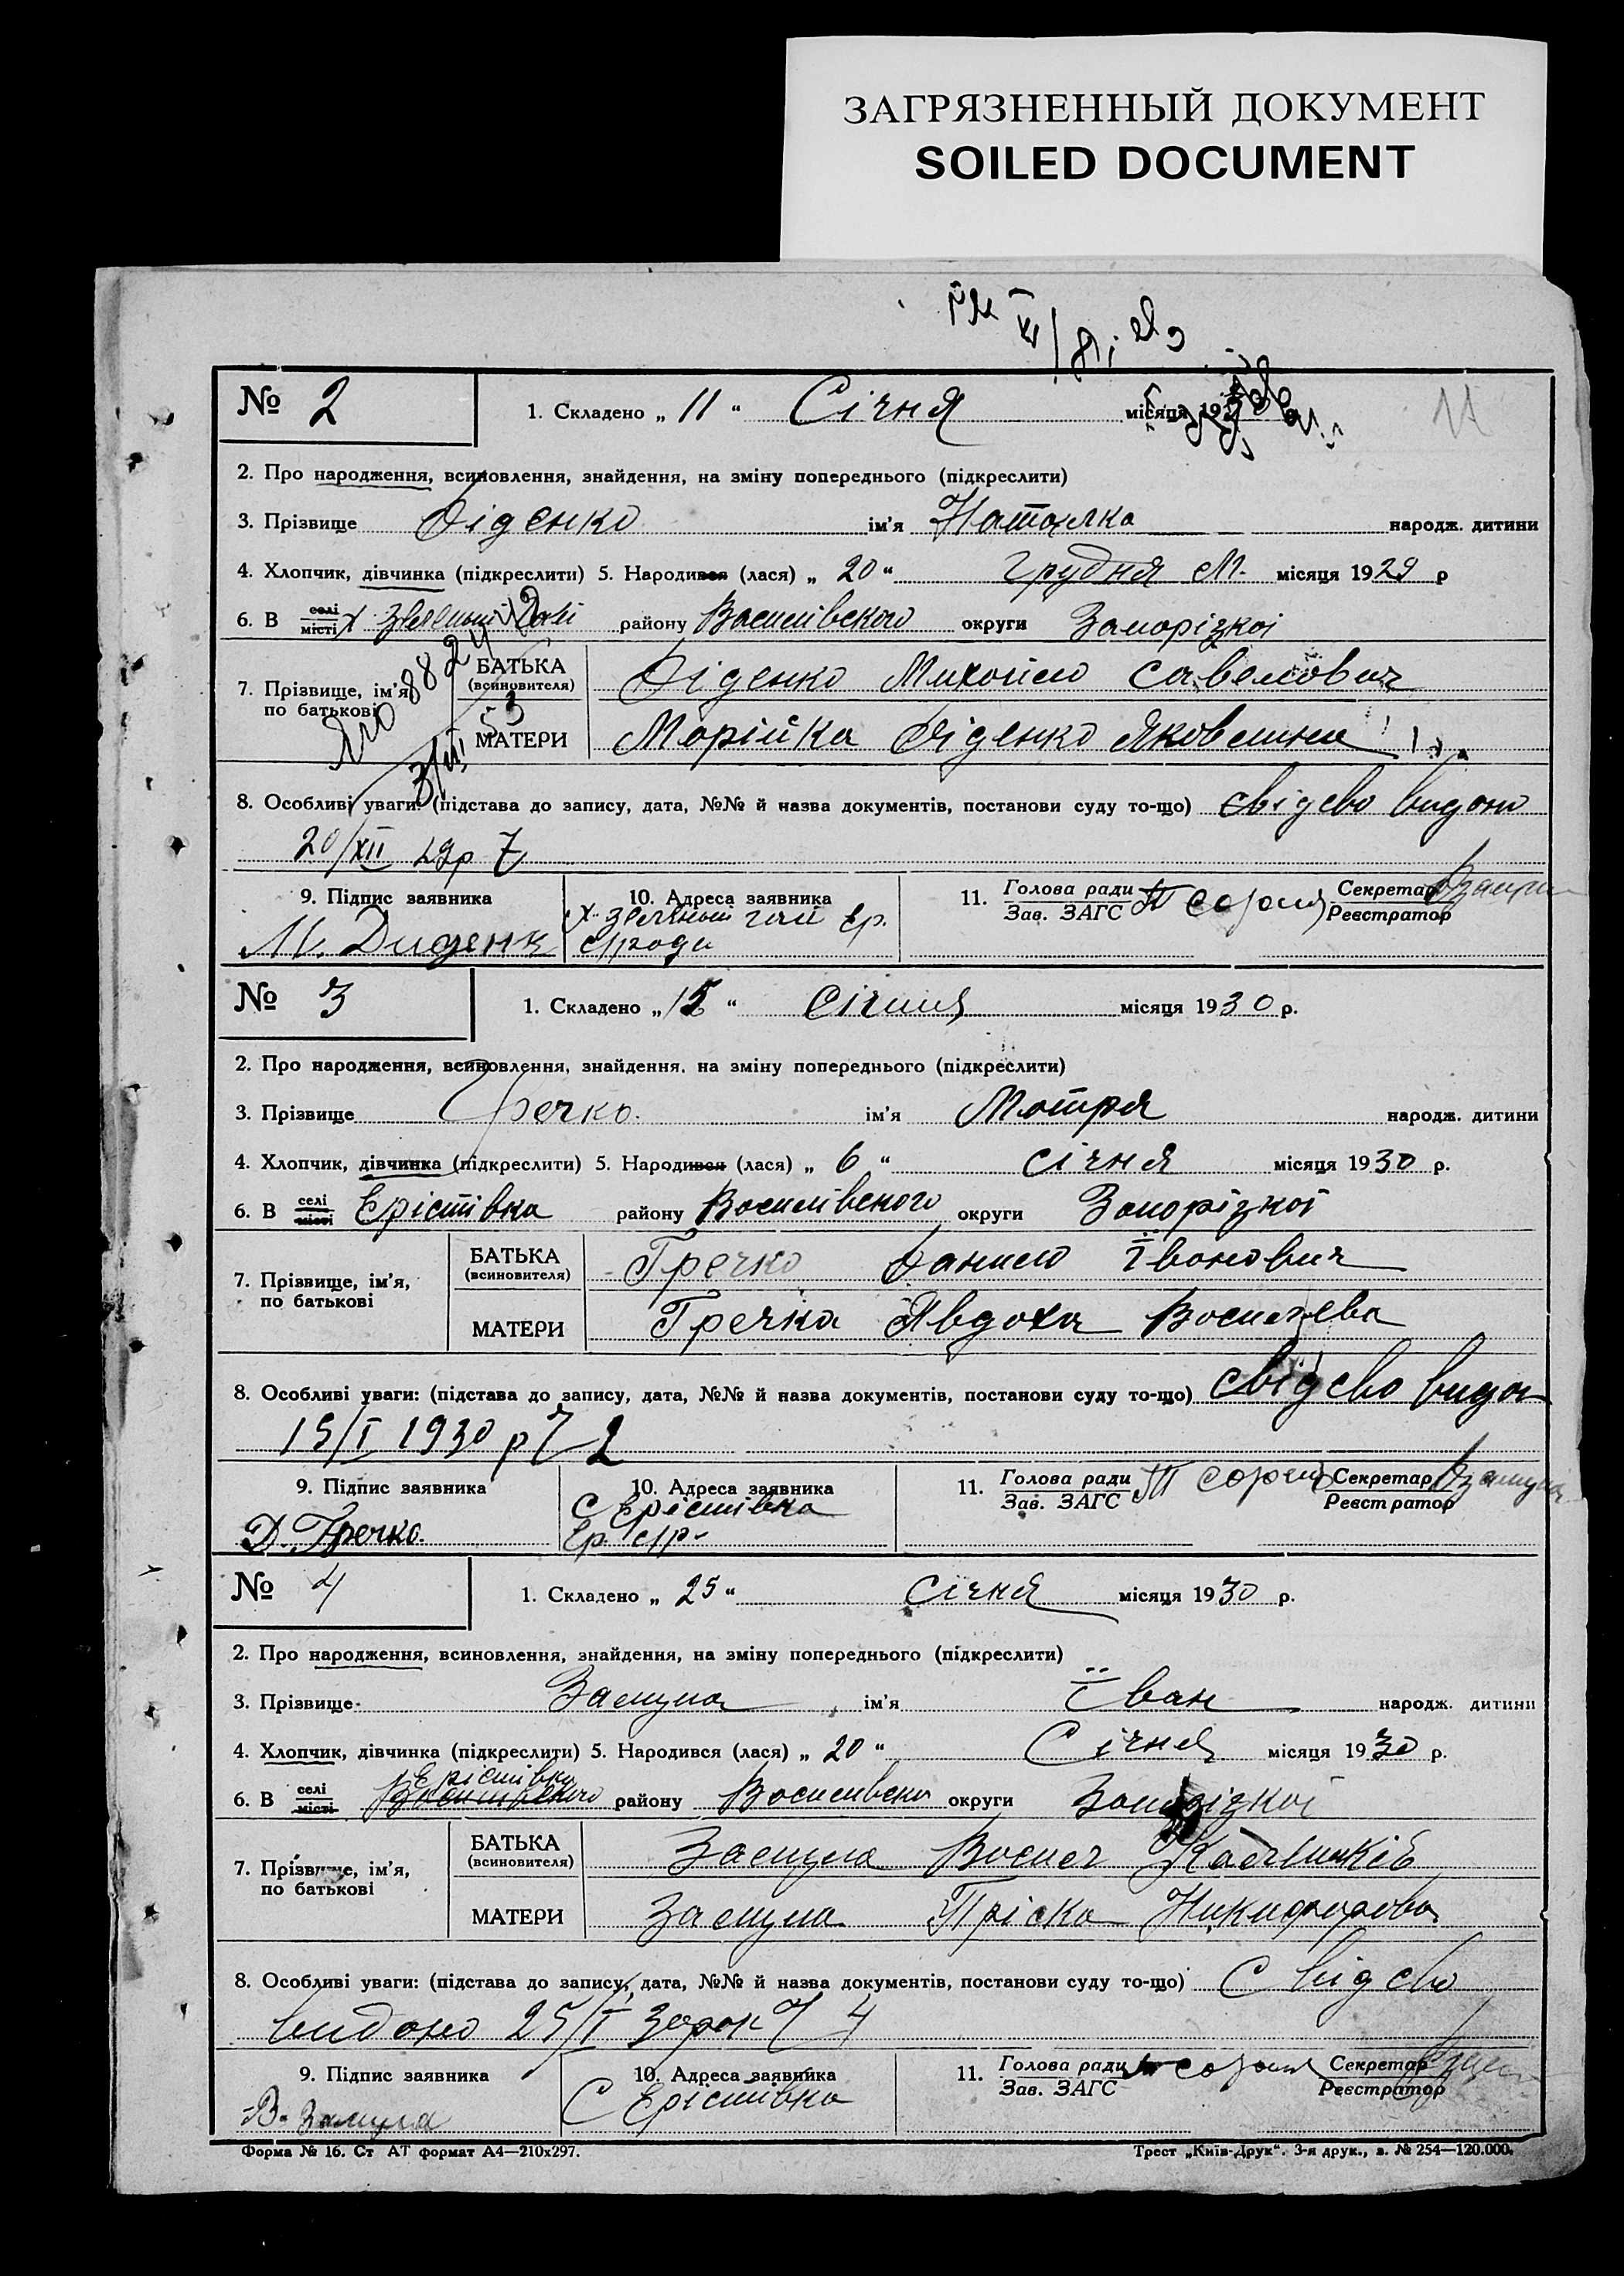 ЗАГРЯЗНЕННЫЙ ДОКУМЕНТ
SOILED DOCUMENT
№ 2
1. Складено „ 11 “ Січня місяця 19
2. Про народження, всиновлення, знайдення, на зміну попереднього (підкреслити)
3. Прізвище Діденко ім’я Наталка народж. дитини
4. Хлопчик, дівчинка (підкреслити) 5. Народився (лася) „ 20 “ грудня М. місяця 1929 р
6. В селі місті х. району Василівского округи Запорізкоі
7. Прізвище, ім’я, по батькові
БАТЬКА (всиновителя) Діденко Михайло Савелович
МАТЕРИ Марійка Діденко Яковлина
8824
8. Особливі уваги: (підстава до запису, дата, №№ й назва документів, постанови суду то-що) свідсво видано
20/XII 29р
9. Підпис заявника
10. Адреса заявника
11. Голова ради Зав. ЗАГС Секретар Реєстратор
М. Диденк
х. зелений гай Ер.
с/ради
№ 3
1. Складено „ 15 “ Січня місяця 1930 р.
2. Про народження, всиновлення, знайдення, на зміну попереднього (підкреслити)
3. Прізвище Гречко ім’я Мотря народж. дитини
4. Хлопчик, дівчинка (підкреслити) 5. Народився (лася) „ 6 “ січня місяця 1930 р.
6. В селі місті Ерістівка району Василівского округи Запорізкоі
7. Прізвище, ім’я, по батькові
БАТЬКА (всиновителя) Гречко Данило Іванович
МАТЕРИ Гречка Явдоха Василева
8. Особливі уваги: (підстава до запису, дата, №№ й назва документів, постанови суду то-що) свідсво видан
15/I 1930 р
9. Підпис заявника
10. Адреса заявника
11. Голова ради Зав. ЗАГС Секретар Реєстратор
Д. Гречко.
с Ерістівка
Ер. с/р
№ 4
1. Складено „ 25 “ Січня місяця 1930 р.
2. Про народження, всиновлення, знайдення, на зміну попереднього (підкреслити)
3. Прізвище Замула ім’я Іван народж. дитини
4. Хлопчик, дівчинка (підкреслити) 5. Народився (лася) „ 20 “ Січня місяця 1930 р.
6. В селі місті Ерістівка району округи Запорізкоі
7. Прізвище, ім’я, по батькові
БАТЬКА (всиновителя) Замула
МАТЕРИ Замула Пріска Никифорова
8. Особливі уваги: (підстава до запису, дата, №№ й назва документів, постанови суду то-що) Свідсво
видано 25/I 30
9. Підпис заявника
10. Адреса заявника
11. Голова ради Зав. ЗАГС Секретар Реєстратор
В. Замула
С Ерістівка
Форма № 16. Ст АТ формат А4—210х297.
Трест „Київ-Друк“. 3-я друк., з. № 254—120.000.